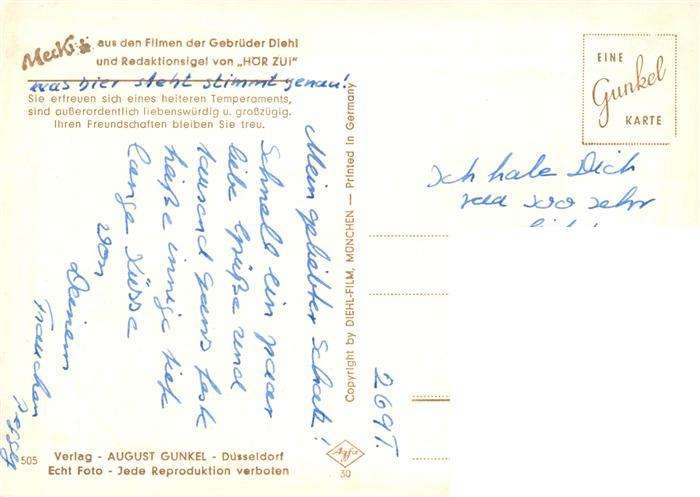 Mecki aus den Filmen der Gebrüder Diehl
und Redaktionsigel von „HÖR ZU!"
was hier steht stimmt genau!
Sie erfreuen sich eines heiteren Temperaments,
sind außerordentlich liebenswürdig u. großzügig.
Ihren Freundschaften bleiben Sie treu.
Mein geliebter Schatz!
Schnell ein paar
liebe Grüße und
tausend ganz feste
heiße innige tiefe
lange Küsse
von
Deinem
Frauchen
Copyright by DIEHL-FILM, MÜNCHEN — Printed in Germany
EINE
Gunkel
KARTE
Ich habe Dich
sehr
269T.
505 Verlag - AUGUST GUNKEL - Düsseldorf
Echt Foto - Jede Reproduktion verboten
Agfa
30